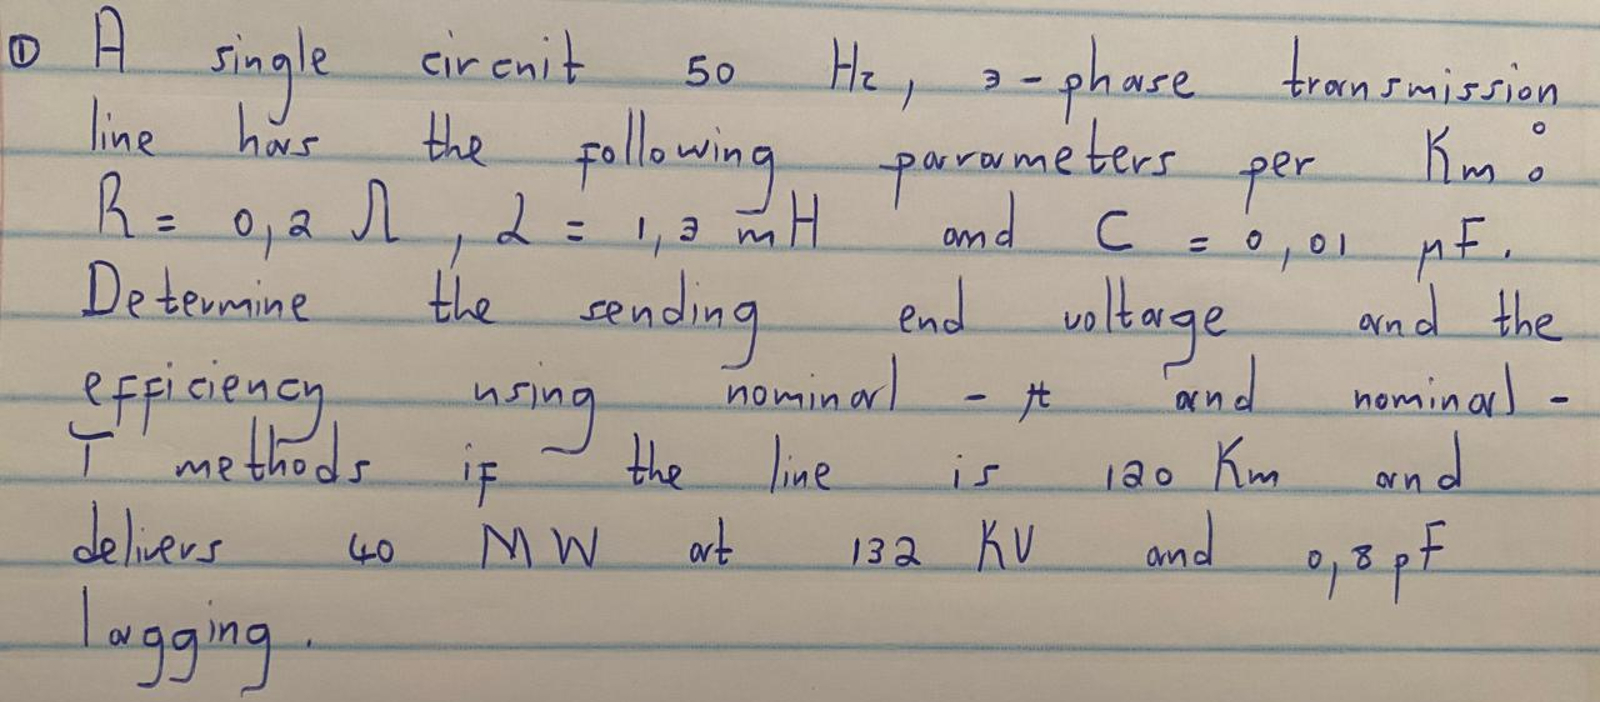 ① A single circuit 50 Hz, 3-phase transmission
line has the following parameters per Km :
R = 0,2 Ω , L = 1,3 mH and C = 0,01 μF.
Determine the sending end voltage and the
efficiency using nominal - π and nominal -
T methods if the line is 120 Km and
delivers 40 MW at 132 KV and 0,8 pF
lagging .